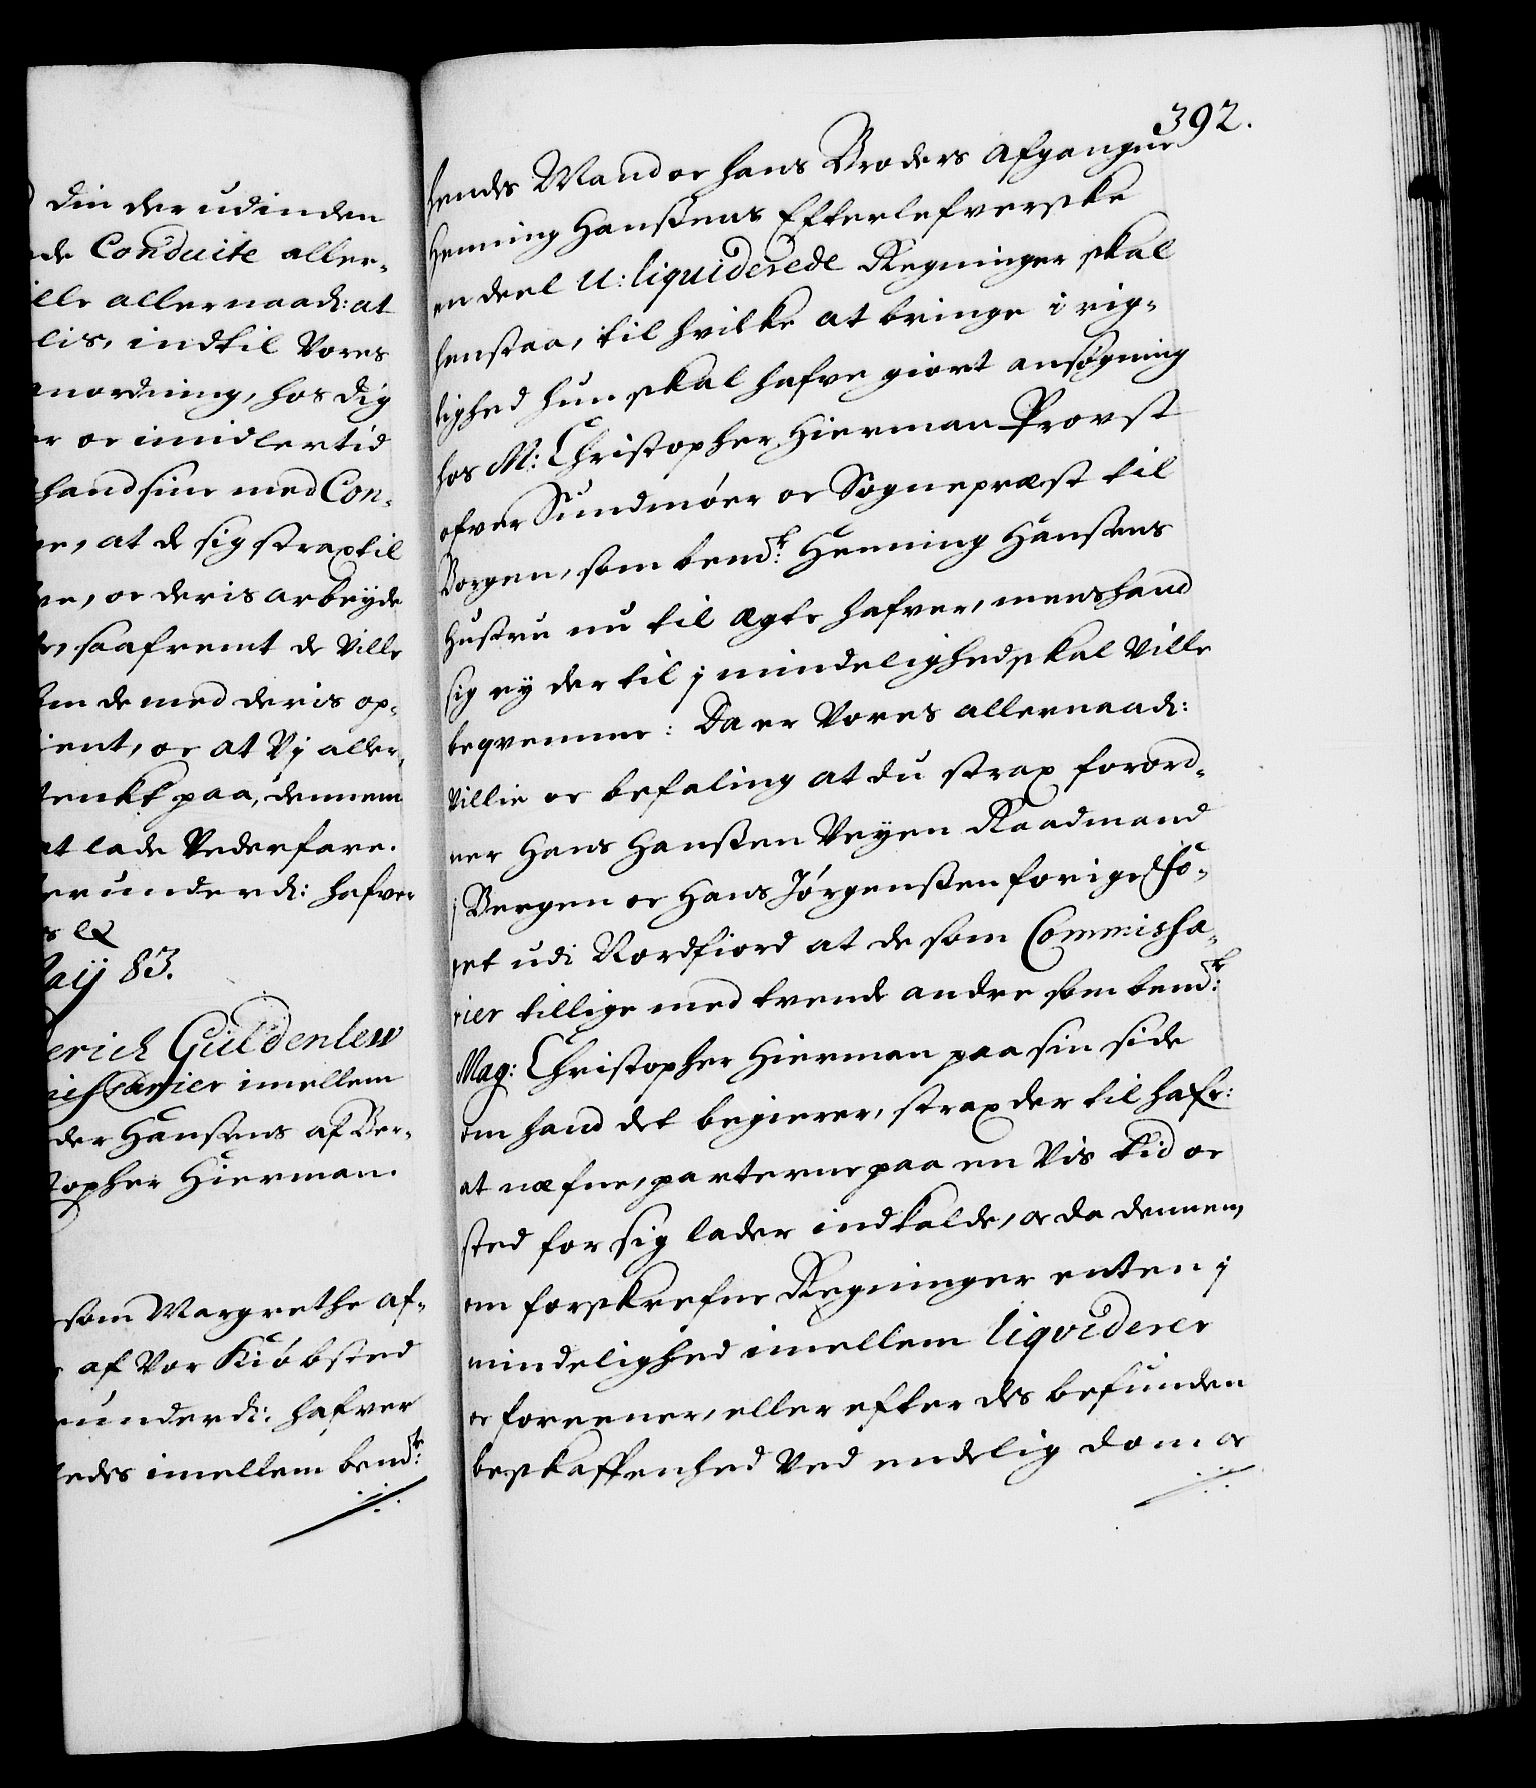 din der udinden
de Conduite aller-
ille allernaad: at
lis, indtil Vores
anordning, hos dig
er oc imidlertid
hand sine med Con-
ne, at de sig strax til
ve, oc deris arbeyde
saafremt de Ville
som de med deris op-
ient, oc at Vj aller-
tenkt paa, dennem
at lade Vederfare.
derunder di: hafver
s &c
Maij 83.
erich Güldenlew
missarier imellem
der Hansens af Ber-
topher Hierman.
som Margrethe af-
af Vor Kiøbsted
underdi: hafver
ledes imellem bemte:
392.
hendes Mand oc hans Broders afgangne
Henning Hanßens Efterlefverske
en deel U: liquiderede Regninger skal
henstaa, til hvilke at bringe i rig-
tighed hun skal hafve giort ansøgning
hos M: Christopher Hierman Provst
ofver Sundmöer oc Sognepræst til
Borgen, som bemte: Henning Hansens
Hustru nu til ægte hafver, mens hand
sig ey der til j mindelighed skal Ville
beqvemme: Da er Vores allernaad:
Villie oc befaling at du strax forord-
ner Hans Hanßen Veyen Raadmand
j Bergen oc Hans Jörgenßen forige Fo-
get udi Nordfiord at de som Commissa-
rier tillige med tvende andre som bemte:
Mag: Christopher Hierman paa sin side
om hand det begierer, strax der til hafr:
at næfne, parterne paa en Vis tid oc
sted for sig lader indkalde, oc da dennem,
om forskrefne Regninger enten j
mindelighed imellem liqviderer
oc foreener, eller efter des befunden
beskaffenhed Ved endelig dom oc